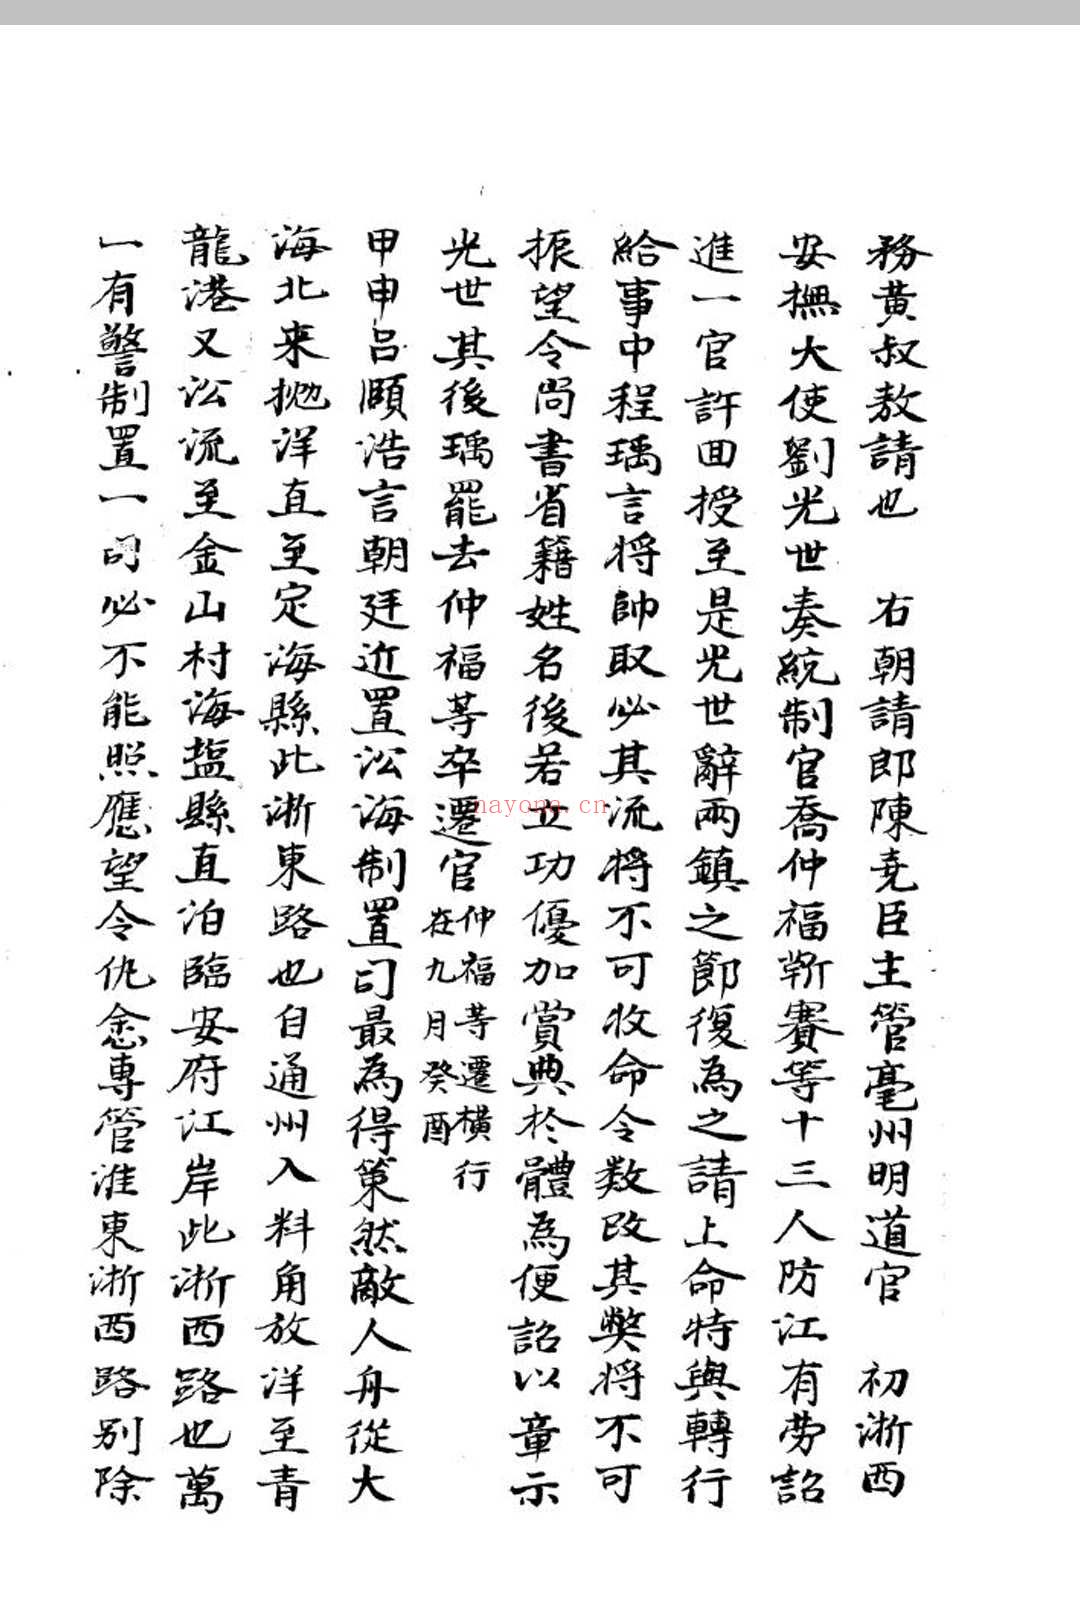 務黄叔敖請也　右朝請郎陳堯臣主管亳州明道宫　初浙西
安撫大使劉光世奏統制官喬仲福靳賽等十三人防江有劳詔
進一官許回授至是光世辭兩鎮之節復為之請上命特與轉行
給事中程瑀言将帥取必其流将不可收命令数改其弊将不可
振望令尚書省籍姓名後若立功優加賞典於體為便詔以章示
光世其後瑀罷去仲福等卒遷官仲福等遷横行在九月癸酉
甲申吕頤浩言朝廷近置㳂海制置司最為得策然敵人舟從大
海北来抛洋直至定海縣此浙東路也自通州入料角放洋至青
龍港又㳂流至金山村海盐縣直泊臨安府江岸此浙西路也萬
一有警制置一司必不能照應望令仇悆專管淮東浙西路别除
nayona.cn